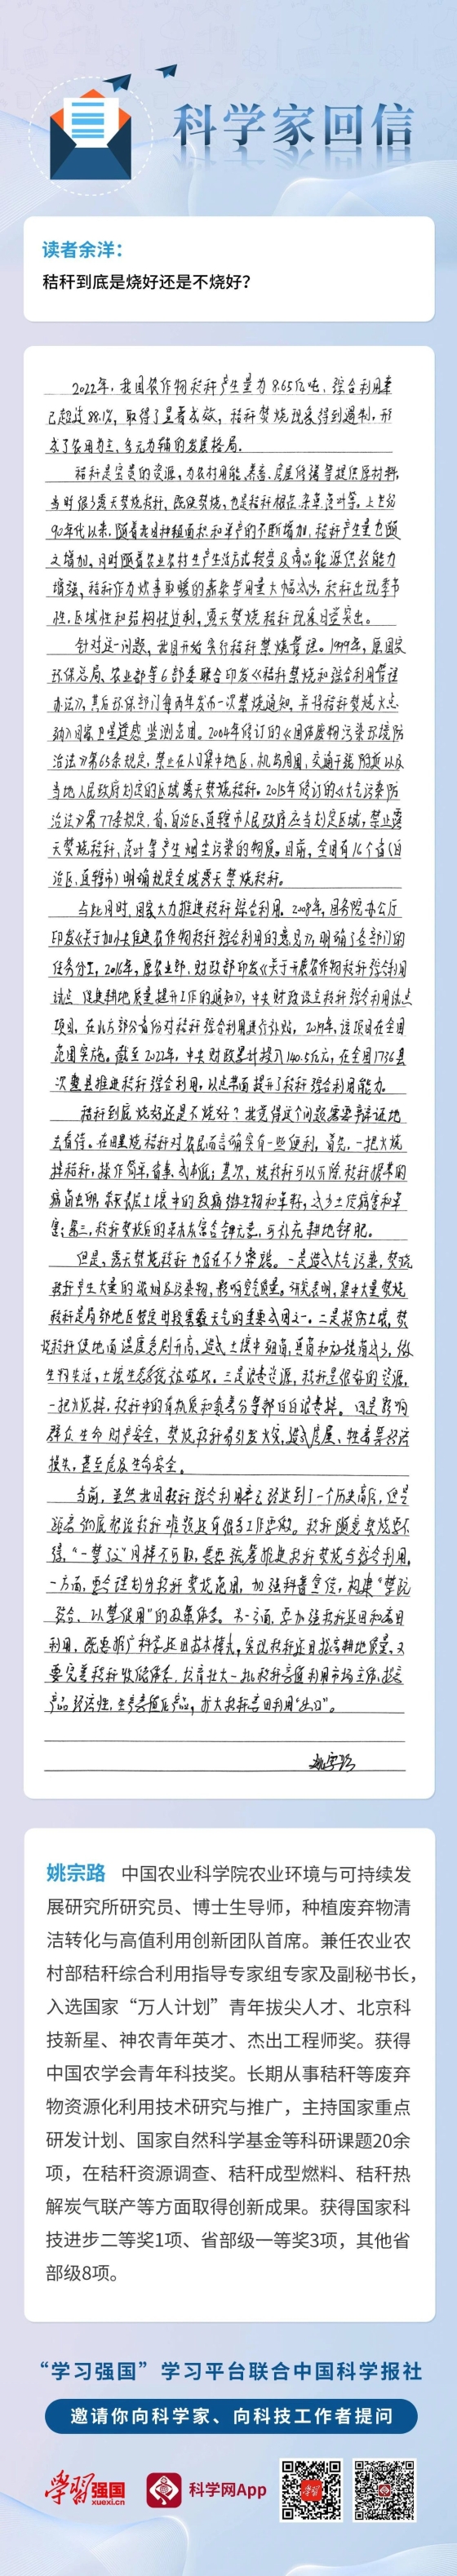 科学家回信
读者余洋：
秸秆到底是烧好还是不烧好？
2022年，我国农作物秸秆产生量为8.65亿吨，综合利用率
已超过88.1%，取得了显著成效，秸秆焚烧现象得到遏制，形
成了农用为主、多元为辅的发展格局。
秸秆是宝贵的资源，为农村用能、养畜、房屋修缮等提供原材料，
当时很少露天焚烧秸秆，
90年代以来，随着我国种植面积和单产的不断增加，秸秆产生量也随
之增加，同时随着农业农村生产生活方式转变及商品能源供给能力
增强，秸秆作为炊事取暖的燃柴使用量大幅减少，秸秆出现季节
性、区域性和结构性过剩，露天焚烧秸秆现象日益突出。
针对这一问题，我国开始实行秸秆禁烧管理。1999年，原国家
环保总局、农业部等6部委联合印发《秸秆禁烧和综合利用管理
办法》，其后环保部门每两年发布一次禁烧通知，并将秸秆焚烧火点
纳入国家卫星遥感监测范围。2004年修订的《固体废物污染环境防
治法》第65条规定，禁止在人口集中地区、机场周围、交通干线附近以及
当地人民政府划定的区域露天焚烧秸秆。2015年修订的《大气污染防
治法》第77条规定，省、自治区、直辖市人民政府应当划定区域，禁止露
天焚烧秸秆、落叶等产生烟尘污染的物质。目前，全国有16个省（自
治区、直辖市）明确规定全域露天禁烧秸秆。
与此同时，国家大力推进秸秆综合利用。2008年，国务院办公厅
印发《关于加快推进农作物秸秆综合利用的意见》，明确了各部门的
任务分工。2016年，原农业部、财政部印发《关于开展农作物秸秆综合利用
试点 促进耕地质量提升工作的通知》，中央财政设立秸秆综合利用试点
项目，在北方部分省份对秸秆综合利用进行补贴，2019年，该项目在全国
范围实施。截至2022年，中央财政累计投入140.5亿元，在全国1736县
次整县推进秸秆综合利用，以点带面提升了秸秆综合利用能力。
秸秆到底烧好还是不烧好？我觉得这个问题需要辩证地
去看待。在田里烧秸秆对农民而言确实有一些便利，首先，一把火烧
掉秸秆，操作简单，省事、成本低；其次，烧秸秆可以消除秸秆携带的
病菌虫卵，杀灭表层土壤中的致病微生物和草籽，减少土传病害和草
害；第三，秸秆焚烧后的草木灰富含钾元素，可补充耕地钾肥。
但是，露天焚烧秸秆也存在不少弊端。一是造成大气污染，焚烧
秸秆产生大量的浓烟及污染物，影响空气质量。研究表明，集中大量焚烧
秸秆是局部地区特定时段雾霾天气的重要成因之一。二是损伤土壤，焚
烧秸秆使地面温度急剧升高，造成土壤中细菌、真菌和放线菌减少，微
生物失活，土壤生态系统被破坏。三是浪费资源，秸秆是很好的资源，
一把火烧掉，秸秆中的有机质和氮养分等都白白浪费掉。四是影响
群众生命财产安全，焚烧秸秆易引发火灾，造成房屋、牲畜等经济
损失，甚至危及生命安全。
当前，虽然我国秸秆综合利用率已经达到了一个历史高位，但是
距离彻底根治秸秆难题还有很多工作要做。秸秆随意焚烧要不
得，“一禁了之”同样不可取，需要统筹推进秸秆焚烧与综合利用。
一方面，要合理划分秸秆禁烧范围，加强科普宣传，构建“禁疏
结合、以禁促用”的政策体系。另一方面，要加强秸秆还田和离田
利用，既要推广科学还田技术模式，实现秸秆还田提高耕地质量，又
要完善秸秆收储体系，培育壮大一批秸秆高值利用市场主体，提高
产品经济性，生产高值化产品，扩大秸秆离田利用“出口”。
姚宗路
姚宗路 中国农业科学院农业环境与可持续发
展研究所研究员、博士生导师，种植废弃物清
洁转化与高值利用创新团队首席。兼任农业农
村部秸秆综合利用指导专家组专家及副秘书长，
入选国家“万人计划”青年拔尖人才、北京科
技新星、神农青年英才、杰出工程师奖。获得
中国农学会青年科技奖。长期从事秸秆等废弃
物资源化利用技术研究与推广，主持国家重点
研发计划、国家自然科学基金等科研课题20余
项，在秸秆资源调查、秸秆成型燃料、秸秆热
解炭气联产等方面取得创新成果。获得国家科
技进步二等奖1项、省部级一等奖3项，其他省
部级8项。
“学习强国”学习平台联合中国科学报社
邀请你向科学家、向科技工作者提问
学习强国
xuexi.cn
科学网App